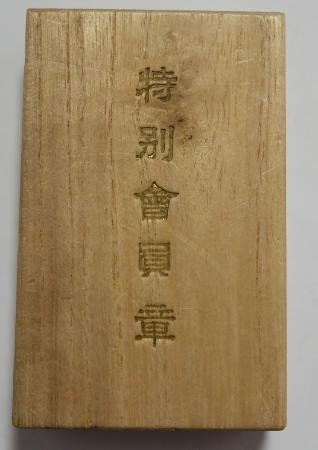 特别會員章